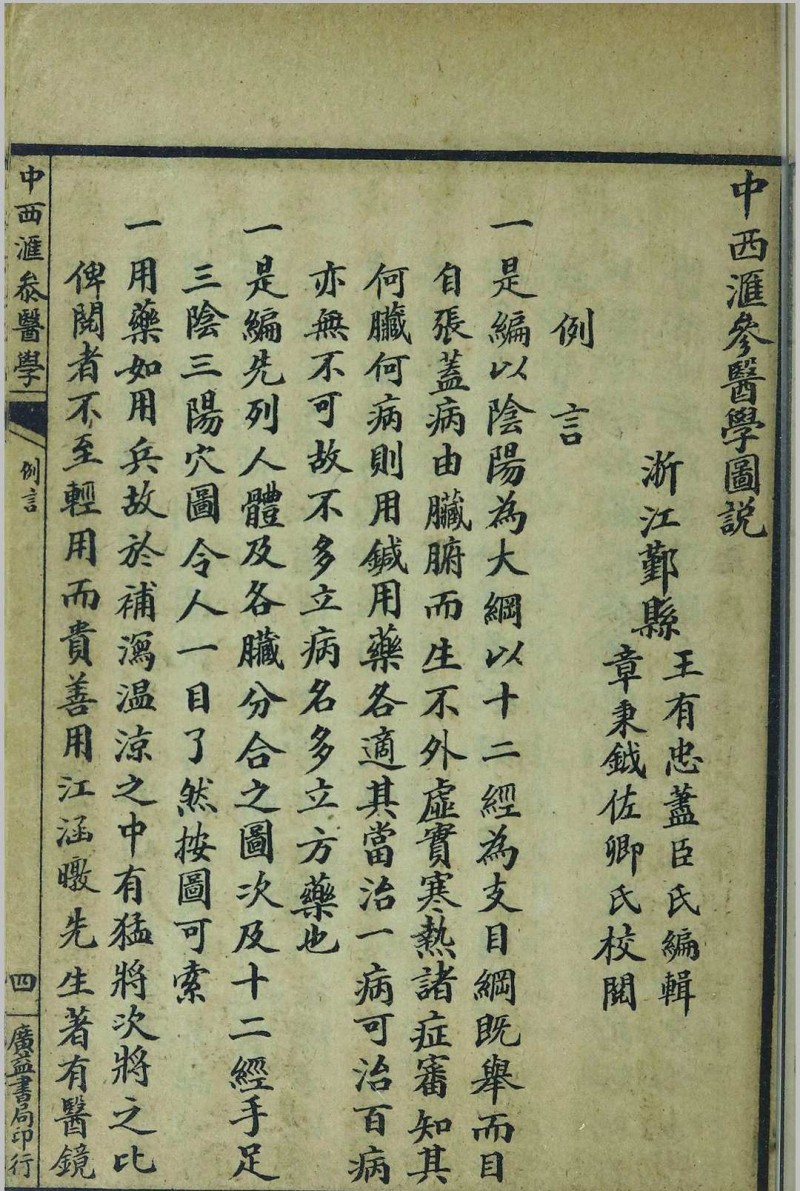 中西滙參醫學圖說
浙江鄞縣
王有忠藎臣氏編輯
章秉鉞佐卿氏校閱
例言
一是編以陰陽為大綱以十二經為支目綱既舉而目
自張蓋病由臟腑而生不外虛實寒熱諸症審知其
何臟何病則用鍼用藥各適其當治一病可治百病
亦無不可故不多立病名多立方藥也
一是編先列人體及各臟分合之圖次及十二經手足
三陰三陽穴圖令人一目了然按圖可索
一用藥如用兵故於補瀉温涼之中有猛將次將之比
俾閱者不至輕用而貴善用江涵暾先生著有醫鏡
中西滙參醫學
例言
四
廣益書局印行